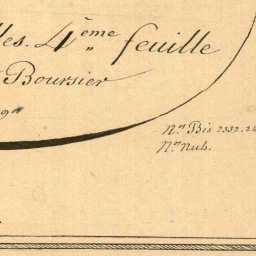 les. 4ème feuille
Boursier
Nos Bis 2332. 2
Nos Nub.